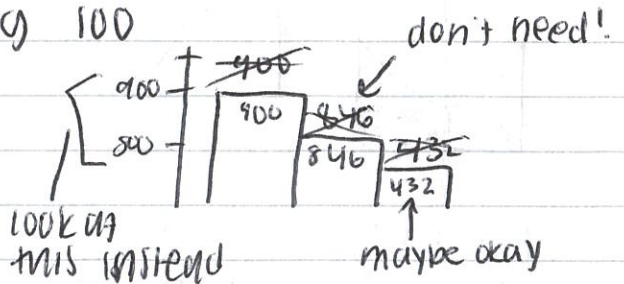 g) 100
don't need!
900
900
900
846
800
846
432
432
look at
this instead
maybe okay